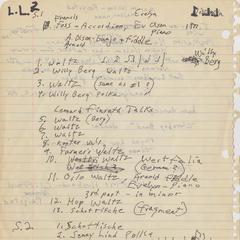 L.L.2 S.1
Evelyn
Foss - Accordion, Ev Olson
Piano
A. Olson - Banjo + Fiddle
Arnold
1. Waltz
Willy Berg
2. Willy Berg Waltz
3. Waltz (same as #1)
4. Willy Berg Polka
Leonard Finseth Talks
5. Waltz (Berg)
6. Waltz
7. Waltz
8. Waltz
9. Farmer's Waltz
10. Waltz Westfalia
(German)
11. Oslo Waltz Arnold Fiddle
Evelyn - Piano
3rd part - in minor
12. Hop Waltz
13. Schottische (fragment)
S.2
1. Schottische
2. Jenny Lind Polka